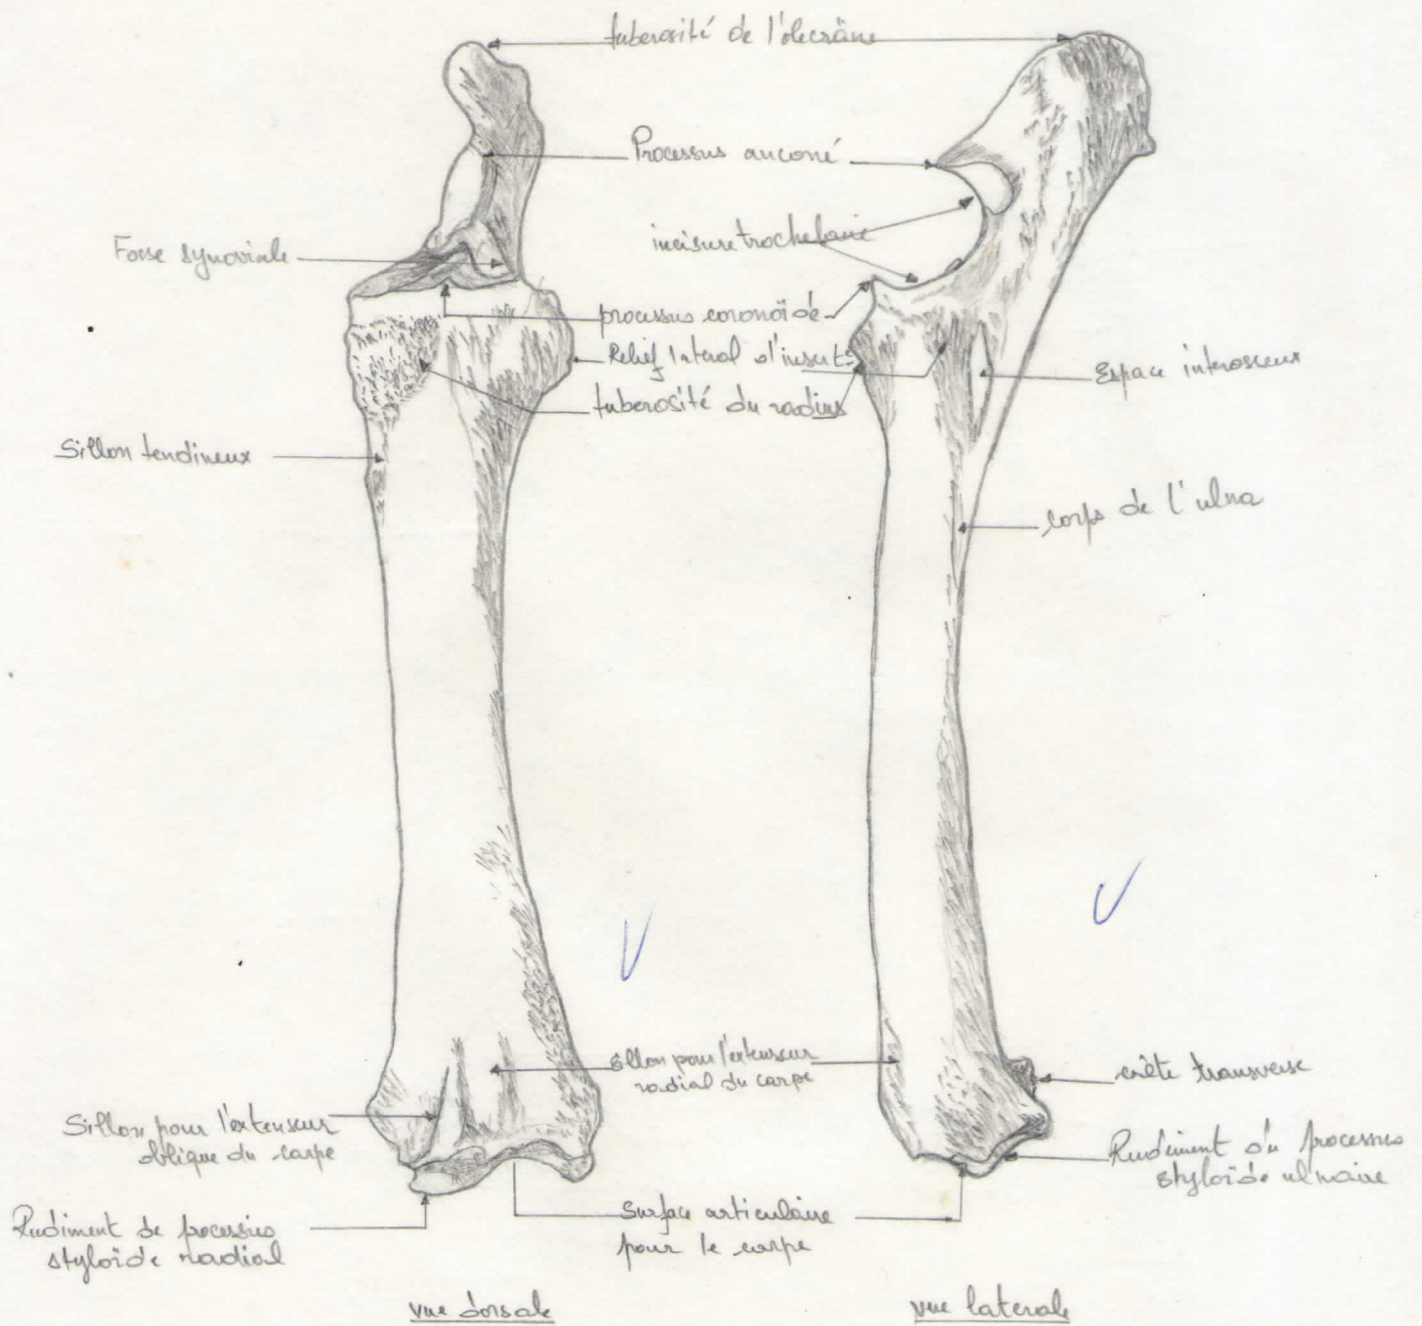 tuberosité de l'olecrâne
Processus anconé
incisure trochelaire
Fosse synoviale
processus coronoïde
Relief lateral d'insert°
Espace interosseux
tuberosité du radius
Sillon tendineux
corps de l'ulna
sillon pour l'extenseur
radial du carpe
crête transverse
Sillon pour l'extenseur
oblique du carpe
Rudiment du processus
styloïde ulnaire
Rudiment de processus
styloïde radial
Surface articulaire
pour le carpe
vue dorsale
vue laterale